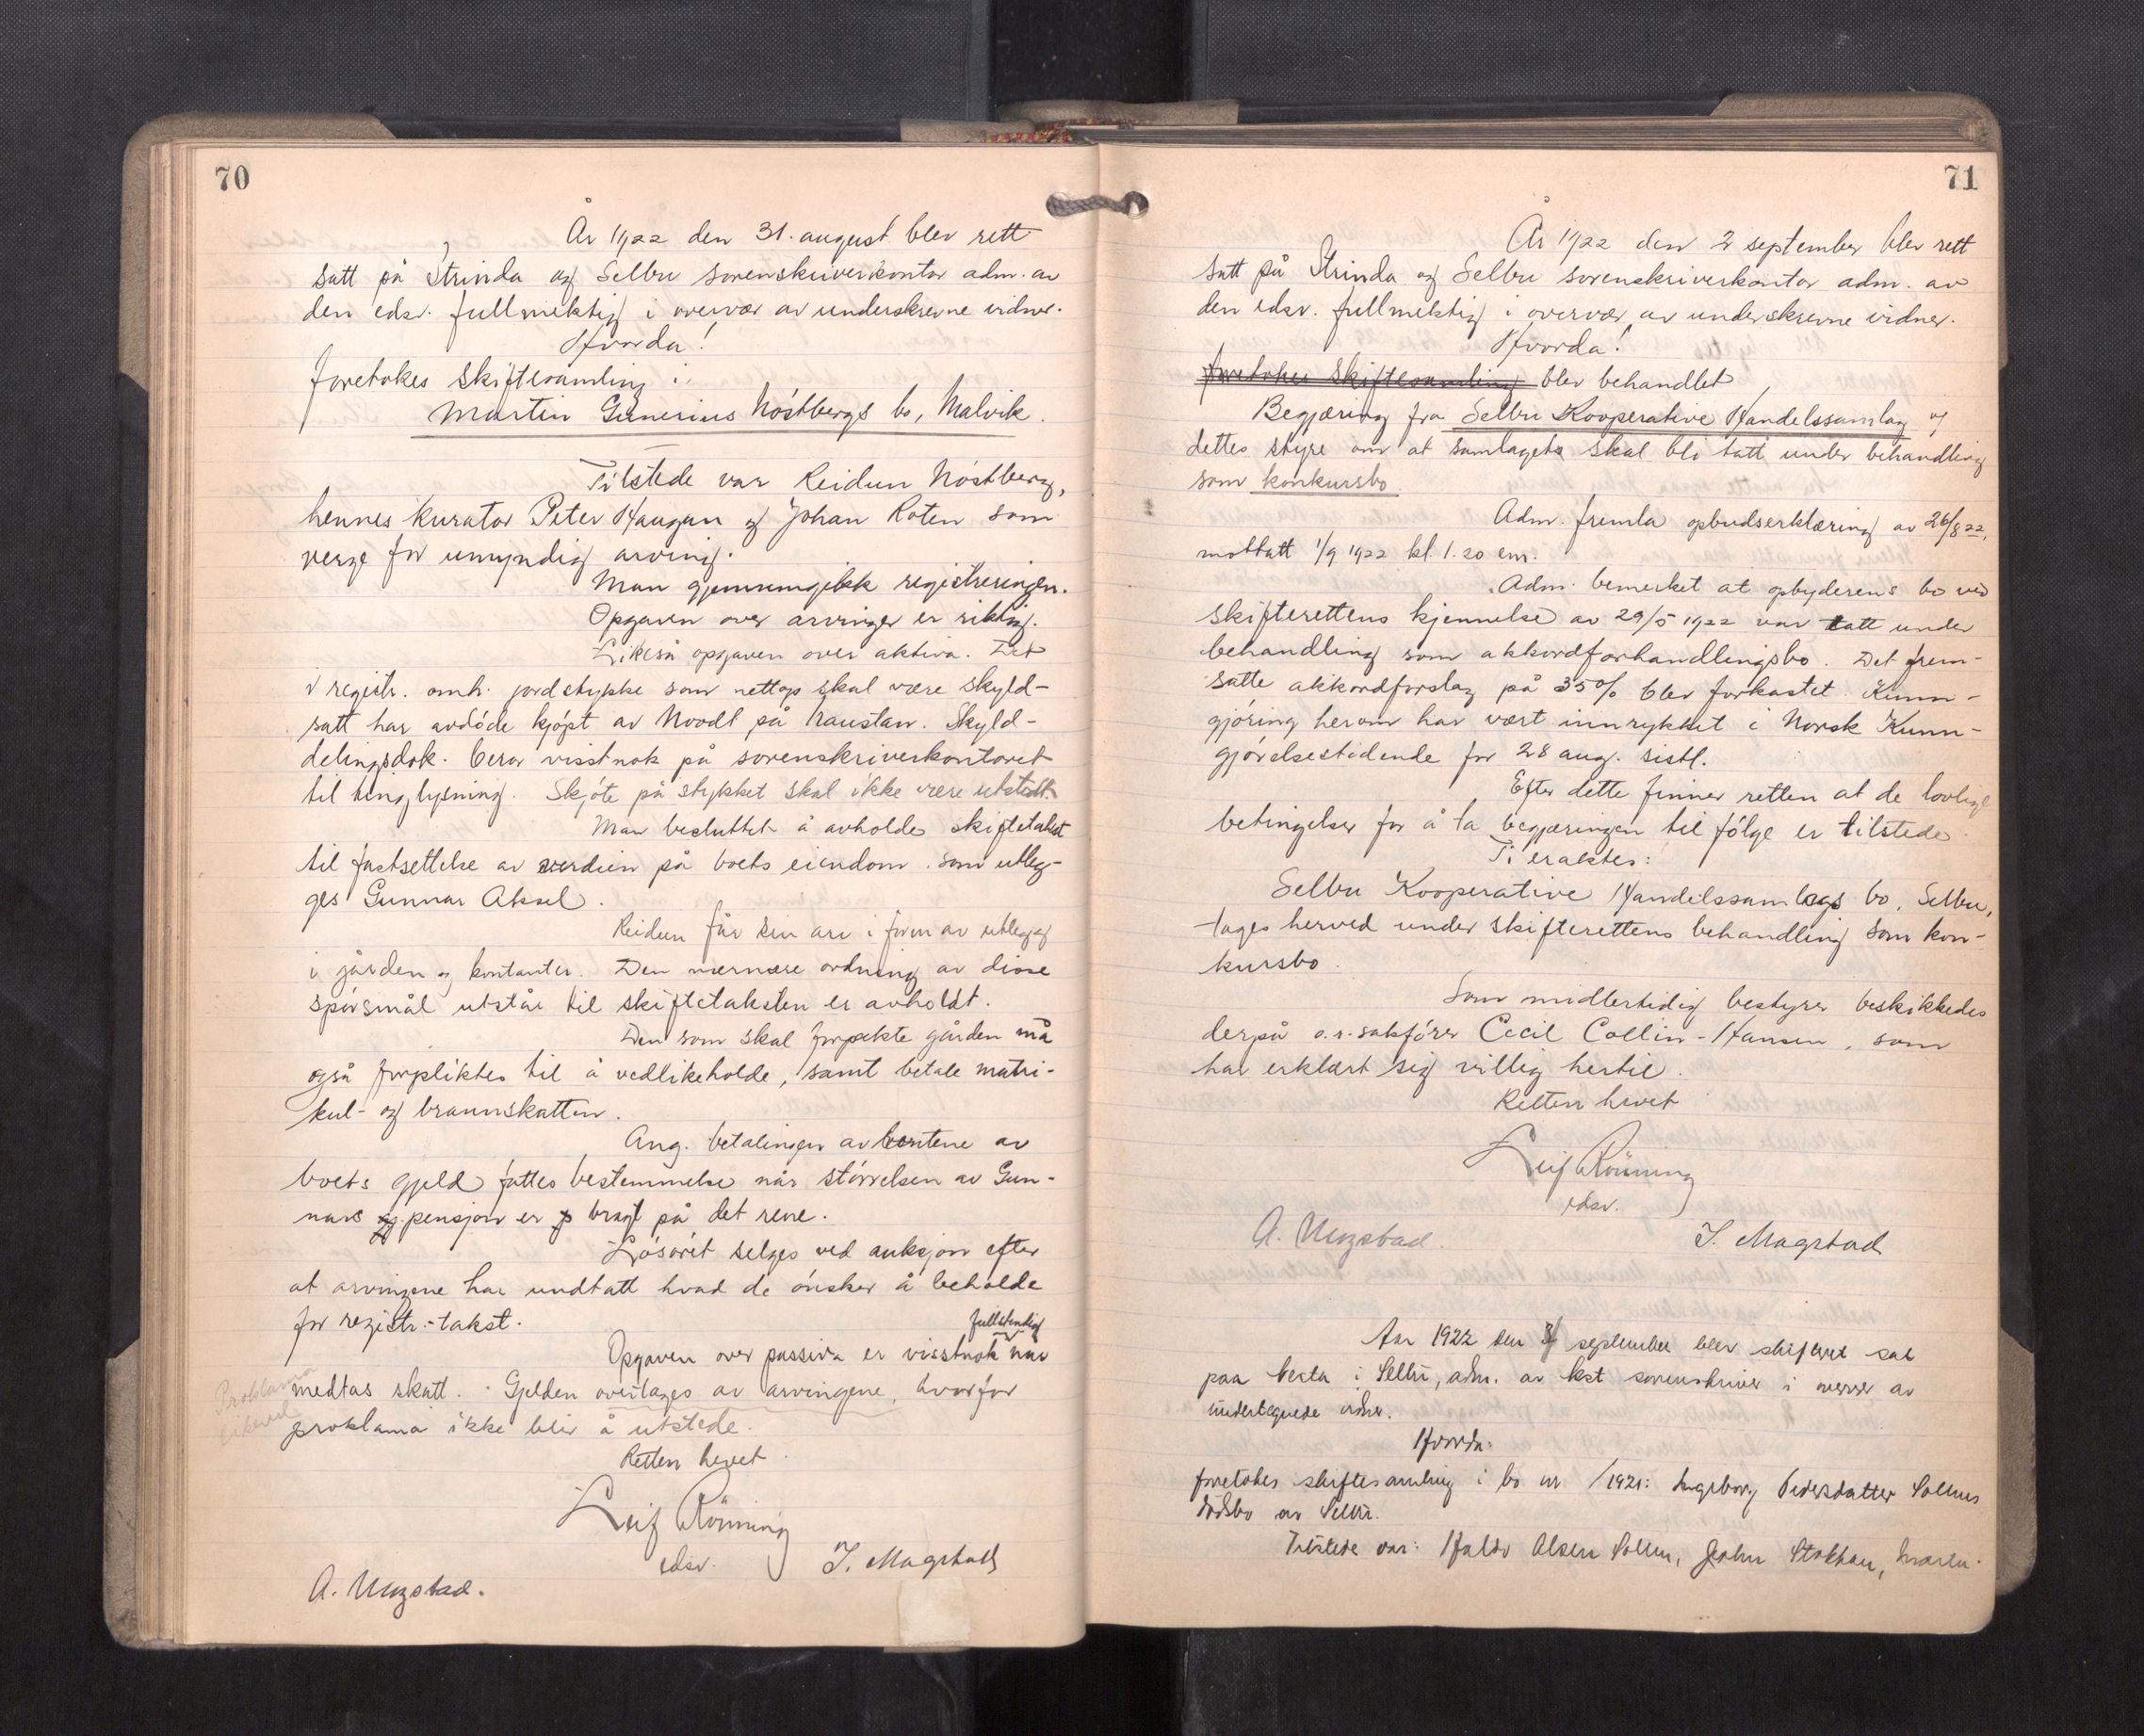 70
År 1922 den 31. august blev rett
satt på Strinda og Selbu sorenskriverkontor adm. av
den edsv. fullmektig i overvær av underskrevne vidner.
Hvorda!
foretokes skiftesamling i:
Martin Gunerius Nóstbergs bo, Malvik.
Tilstede var Reidun Nóstberg,
hennes kurator Peter Haugan og Johan Roten som
verge for umyndig arving.
Man gjennemgikk registreringen.
Opgaven over arvinger er riktig.
Likeså opgaven over aktiva. Det
i registr. omh. jordstykke som nettop skal være skyld-
satt har avdóde kjópt av Noodt på Saustan. Skyld-
delingsdok. beror visstnok på sorenskriverkontoret
til tinglysning. Skjóte på stykket skal ikke være utstedt.
Man besluttet å avholde skiftetakst
til fastsettelse av verdien på boets eiendom som utleg-
ges Gunnar Aksel.
Reidun får sin arv i form av utlegg
i gården og kontanter. Den nærmere ordning av disse
spórsmål utstår til skiftetaksten er avholdt.
Den som skal forpakte gården må
også forpliktes til å vedlikeholde, samt betale matri-
kul- og brannskatten.
Ang. betalingen av rentene av
boets gjeld fattes bestemmelse når stórrelsen av Gun-
nars pensjon er bragt på det rene.
Lósóret selges ved auksjon efter
at arvingene har undtatt hvad de ónsker å beholde
for registr.-takst.
fullstendig
Opgaven over passiva er visstnok når
medtas skatt. Gjelden overtages av arvingene, hvorfor
proklama ikke blir å utstede.
Proklama
Retten hevet
Leif Rónning
edsv.
A. Ungstad.
I. Magstad
71
År 1922 den 2 september blev rett
satt på Strinda og Selbu sorenskriverkontor adm. av
den edsv. fullmektig i overvær av underskrevne vidner.
Hvorda!
foretokes skiftesamling blev behandlet
Begjæring fra Selbu Kooperative Handelssamlag og
dettes styre om at samlagets skal bli tatt under behandling
som konkursbo.
Adm. fremla opbudserklæring av 26/8 22,
mottatt 1/9 1922 kl. 1.20 em.
Adm. bemerket at opbyderens bo ved
skifterettens kjennelse av 29/5 1922 var tatt under
behandling som akkordforhandlingsbo. Det frem-
satte akkordforslag på 35% blev forkastet. Kunn-
gjóring herom har vært innrykket i Norsk Kunn-
gjórelsestidende for 28 aug. sistl.
Efter dette finner retten at de lovlige
betingelser for å ta begjæringen til fólge er tilstede.
Ti eraktes:
Selbu Kooperative Handelssamlags bo, Selbu,
tages herved under skifterettens behandling som kon-
kursbo.
Som midlertidig bestyrer beskikkedes
derpå o.r.sakfórer Cecil Collin-Hansen, som
har erklært sig villig hertil.
Retten hevet
Leif Rónning
edsv.
A. Ungstad.
I. Magstad
Aar 1922 den september blev skifteret sat
paa Nesta i Selbu, adm. av kst sorenskriver i overvær av
undertegnede vidner.
Hvorda:
foretokes skiftesamling i bo nr /1921: Ingeborg Pedersdatter Solums
dódsbo av Selbu.
Tilstede var: Haldo Olsen Solum, John Stokkan,